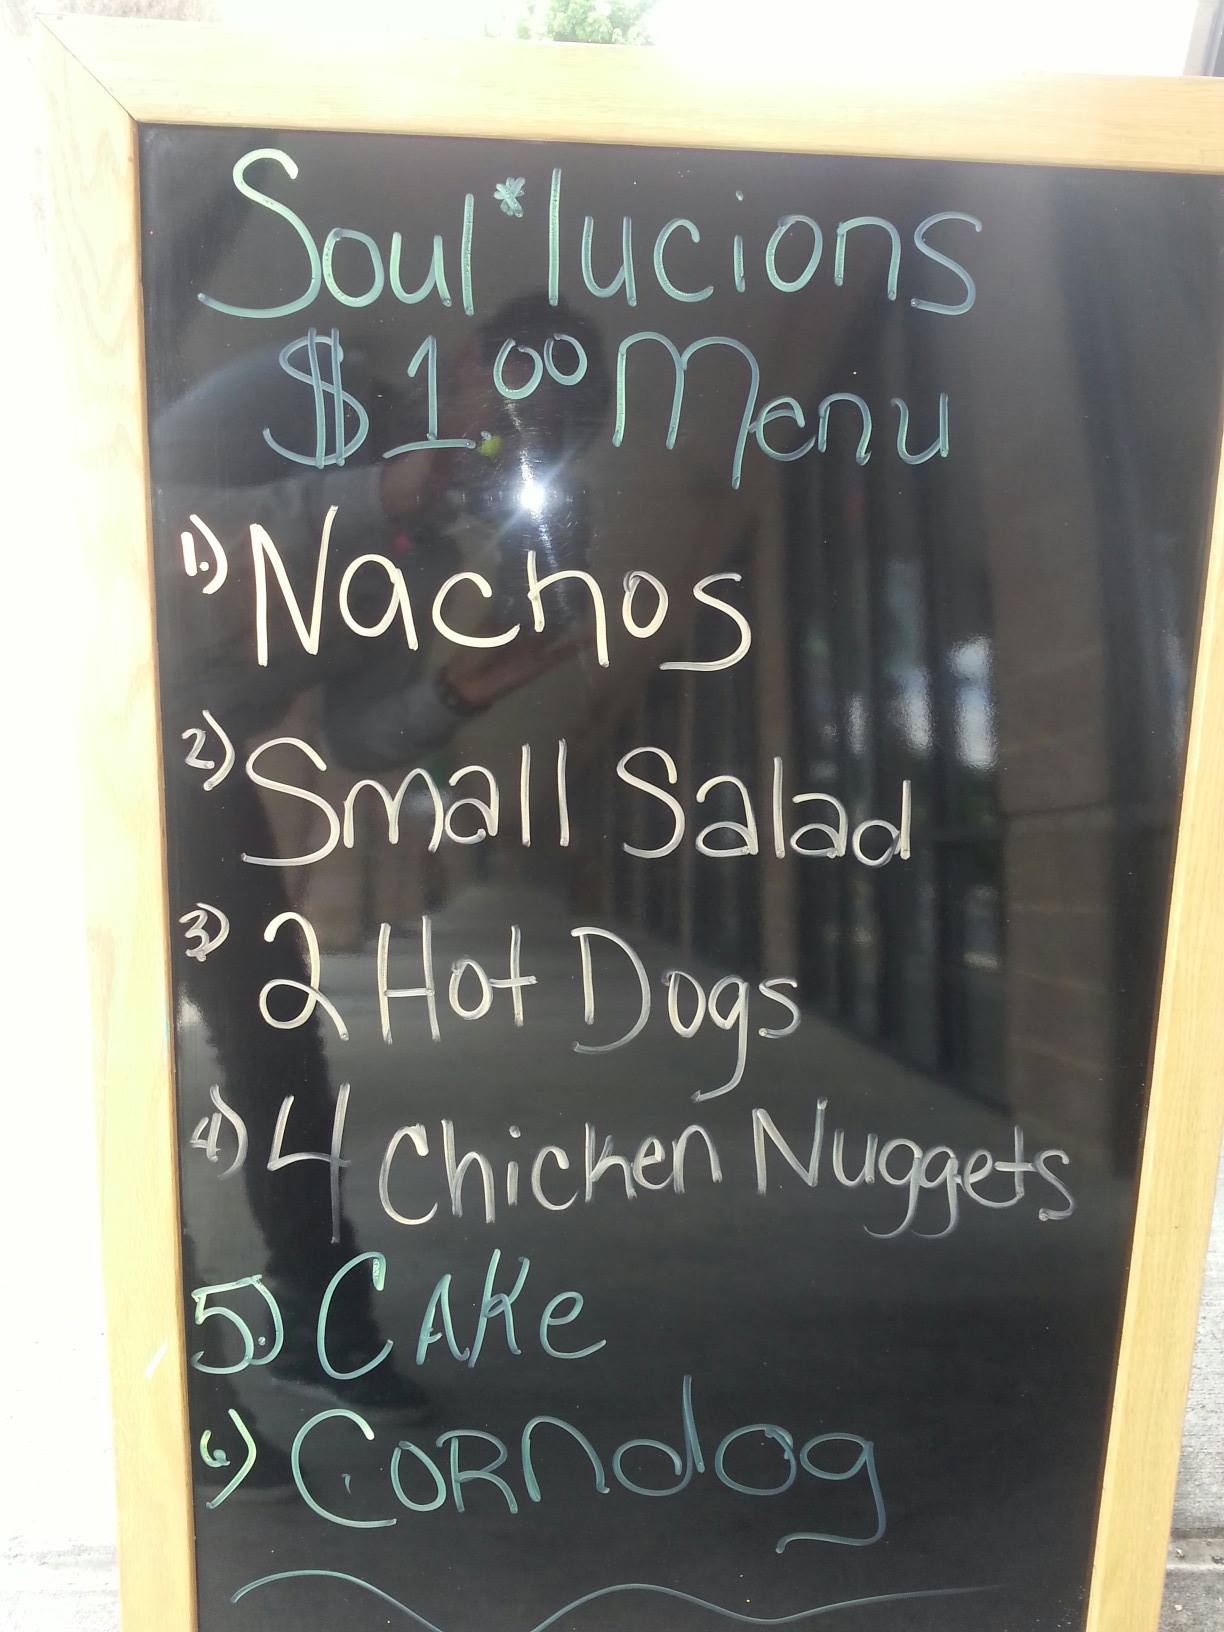 Soul*lucions
$1.00 Menu
1.) Nachos
2) Small Salad
3) 2 Hot Dogs
4) 4 Chicken Nuggets
5.) CAKe
6) CORndog